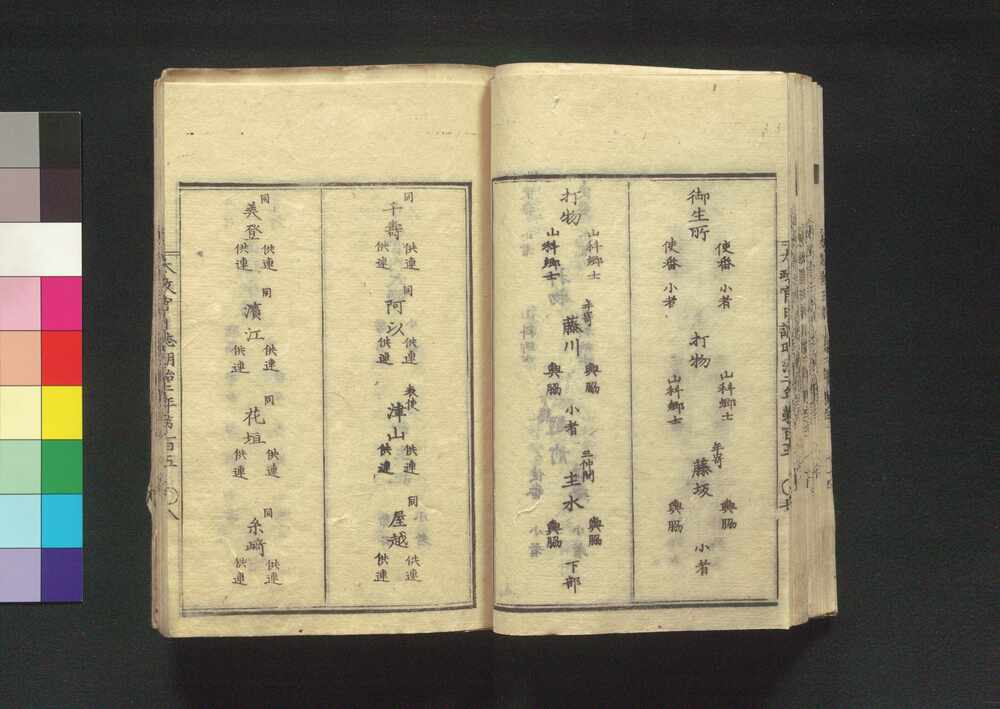 御生所 使番 使番 小者 小者 打物 山科郷士 山科郷士 年寄 藤坂 輿脇 輿脇 小者
打物 山科郷士 山科郷士 年寄 藤川 輿脇 輿脇 小者 三仲間 主水 輿脇 輿脇 下部
同 千壽 供連 供連 同 阿以 供連 供連 表使 津山 供連 供連 同 屋越 供連 供連
同 美登 供連 供連 同 濱江 供連 供連 同 花垣 供連 供連 同 糸崎 供連 供連
太政官日誌明治二年第百五 〇八